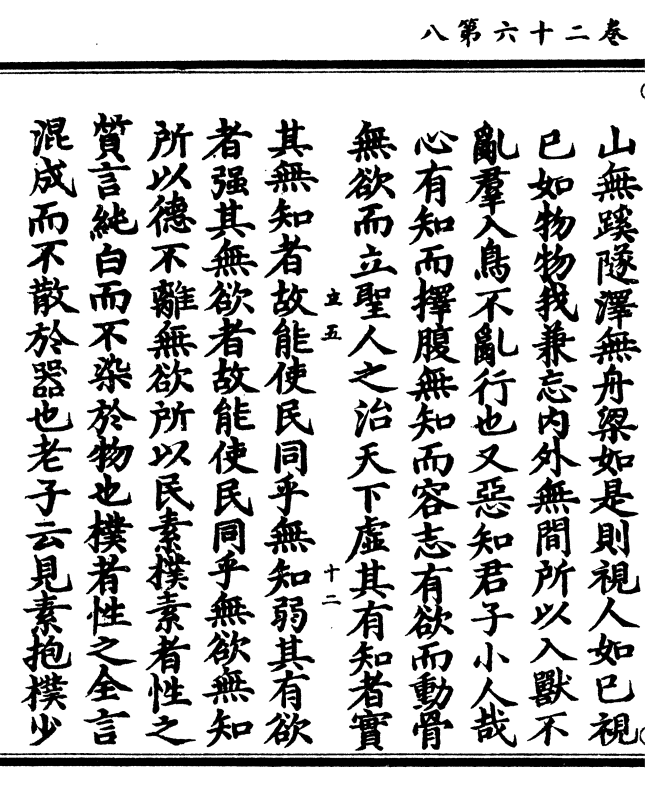 卷二十六第八
山無蹊隧澤無舟梁如是則視人如已視
已如物物我兼忘內外無間所以入獸不
亂羣入鳥不亂行也又惡知君子小人哉
心有知而擇腹無知而容志有欲而動骨
無欲而立聖人之治天下虛其有知者實
立五
十二
其無知者故能使民同乎無知弱其有欲
者强其無欲者故能使民同乎無欲無知
所以德不離無欲所以民素樸素者性之
質言純白而不染於物也樸者性之全言
混成而不散於器也老子云見素抱樸少